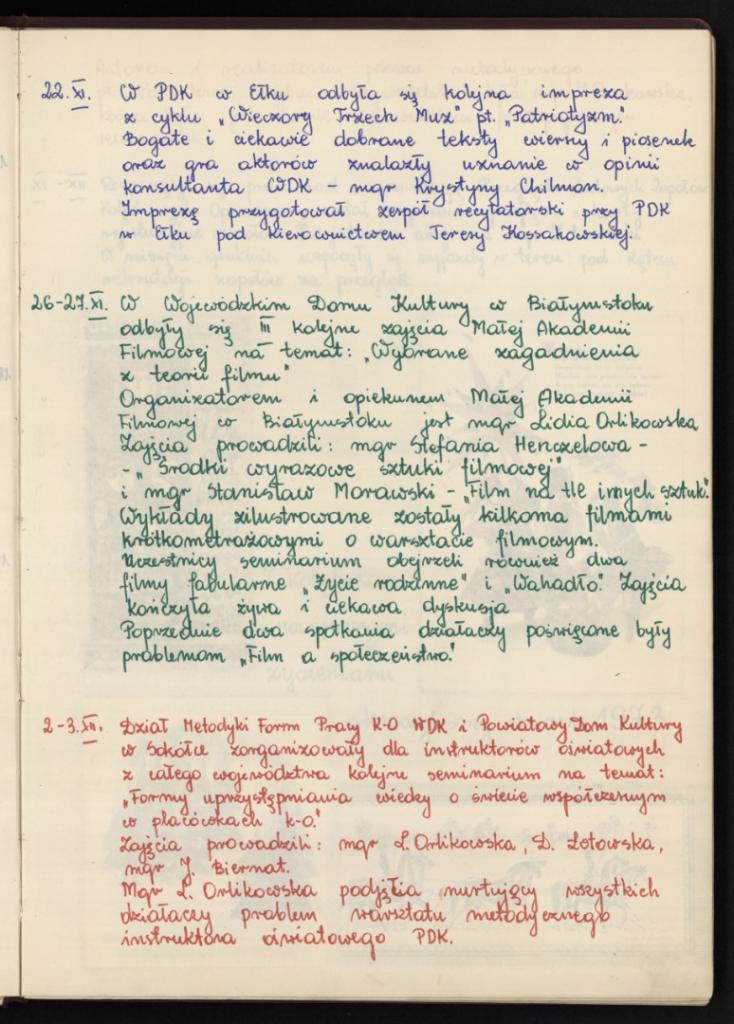 22.XI. W PDK w Ełku odbyła się kolejna impreza
z cyklu „Wieczory Trzech Muz" pt. „Patriotyzm."
Bogate i ciekawie dobrane teksty wierszy i piosenek
oraz gra aktorów znalazły uznanie w opinii
konsultanta WDK – mgr Krystyny Chilmon.
Imprezę przygotował zespół recytatorski przy PDK
w Ełku pod kierownictwem Teresy Kossakowskiej.
26-27.XI. W Wojewódzkim Domu Kultury w Białymstoku
odbyły się III kolejne zajęcia Małej Akademii
Filmowej na temat: „Wybrane zagadnienia
z teorii filmu"
Organizatorem i opiekunem Małej Akademii
Filmowej w Białymstoku jest mgr Lidia Orlikowska
Zajęcia prowadzili: mgr Stefania Henczelowa –
– „Środki wyrazowe sztuki filmowej"
i mgr Stanisław Morawski – „Film na tle innych sztuk."
Wykłady zilustrowane zostały kilkoma filmami
krótkometrażowymi o warsztacie filmowym.
Uczestnicy seminarium obejrzeli również dwa
filmy fabularne „Życie rodzinne" i „Wahadło." Zajęcia
kończyła żywa i ciekawa dyskusja
Poprzednie dwa spotkania działaczy poświęcone były
problemom „Film a społeczeństwo."
2-3.XII. Dział Metodyki Form Pracy K-O WDK i Powiatowy Dom Kultury
w Sokółce zorganizowały dla instruktorów oświatowych
z całego województwa kolejne seminarium na temat:
„Formy uprzystępniania wiedzy o świecie współczesnym
w placówkach k-o."
Zajęcia prowadzili: mgr L. Orlikowska, D. Łotowska,
mgr J. Biernat.
Mgr L. Orlikowska podjęła nurtujący wszystkich
działaczy problem warsztatu metodycznego
instruktora oświatowego PDK.